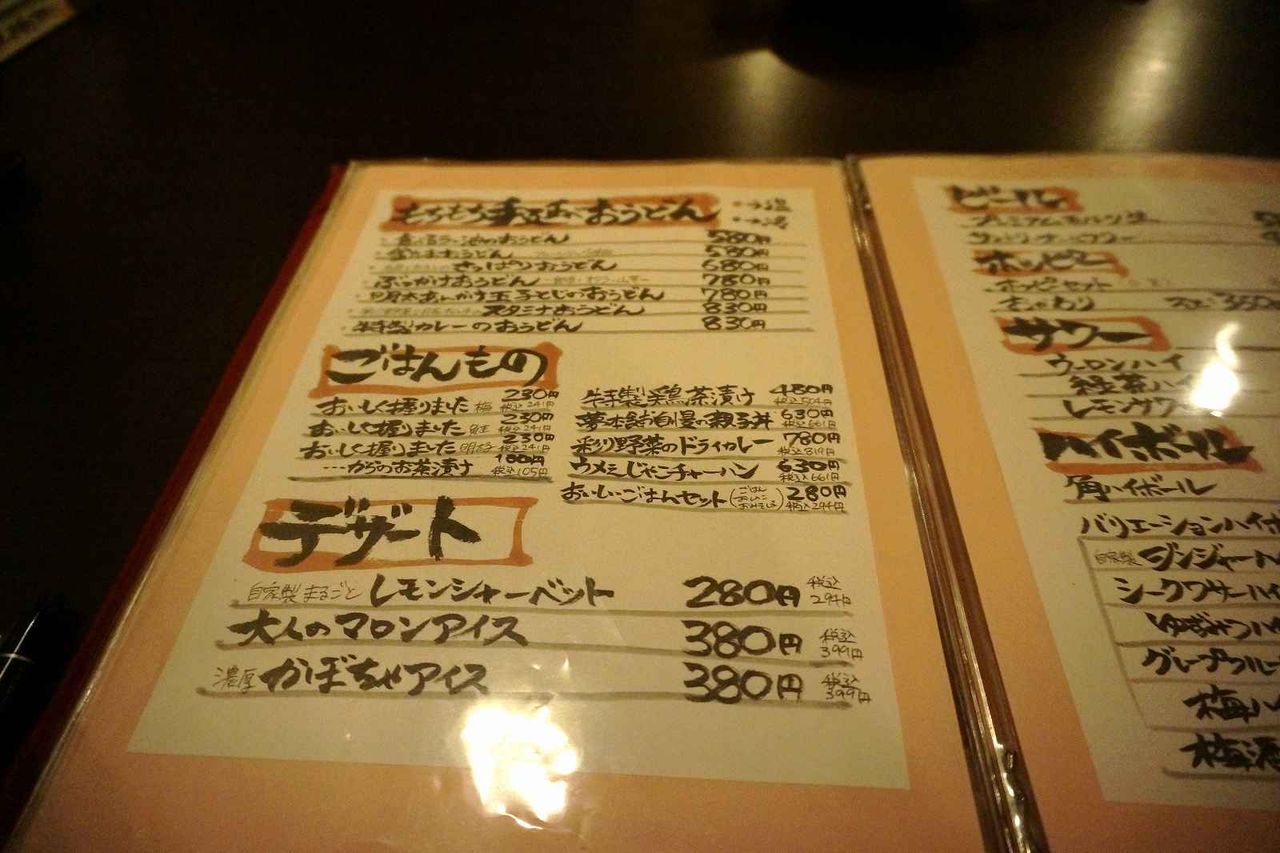 もちもち手延べおうどん
580円
おうどん 580円
さっぱりおうどん 680円
ぶっかけおうどん 780円
明太あんかけ玉子とじのおうどん 780円
スタミナおうどん 830円
特製カレーのおうどん 830円
ごはんもの
おいしく握りました 梅 230円 税込241円
おいしく握りました 鮭 230円 税込241円
おいしく握りました 明太 230円 税込241円
…からのお茶漬け 100円 税込105円
特製鶏茶漬け 480円 税込504円
自慢の親子丼 630円 税込661円
彩り野菜のドライカレー 780円 税込819円
ウメシじゃこチャーハン 630円 税込661円
おいしいごはんセット (ごはん おしんこ おみそしる) 280円 税込294円
デザート
自家製 まるごと レモンシャーベット 280円 税込294円
大人のマロンアイス 380円 税込399円
濃厚 かぼちゃアイス 380円 税込399円
ビール
ホッピー
ホッピーセット
サワー
ウーロンハイ
緑茶ハイ
レモンサワー
ハイボール
角ハイボール
バリエーションハイボ
自家製 ジンジャーハ
シークワサーハイ
グレープフルー
梅ハ
梅酒